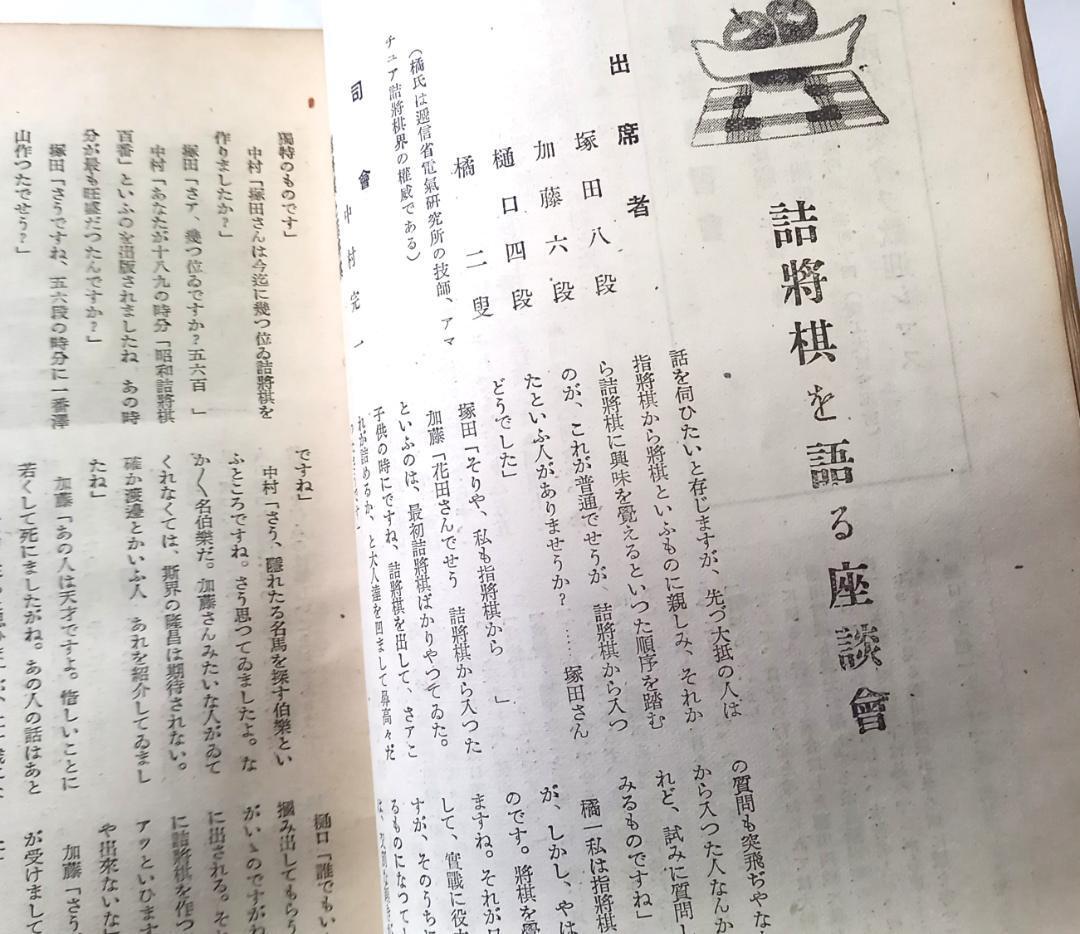 詰將棋を語る座談會
出席者
塚田八段
加藤六段
樋口四段
橘二叟
(橘氏は遞信省電氣研究所の技師、アマ
チュア詰將棋界の權威である)
司會 中村完一
話を伺ひたいと存じますが、先づ大抵の人は
指將棋から將棋といふものに親しみ、それか
ら詰將棋に興味を覺えるといつた順序を踏む
のが、これが普通でせうが、詰將棋から入つ
たといふ人がありませうか? ……塚田さん
どうでした」
塚田「そりや、私も指將棋から 」
加藤「花田さんでせう 詰將棋から入つた
といふのは、最初詰將棋ばかりやつてゐた。
子供の時にですね、詰將棋を出して、さァこ
れが詰めるか、と大人達を困まして鼻高々だ
の質問も突飛ぢやな
から入つた人なんか
れど、試みに質問し
みるものですね」
橘一私は指將棋
が、しかし、やは
のです。將棋を覺
ますね。それが
して、實戰に役
すが、そのうちに
るものになつて
獨特のものです」
中村「塚田さんは今迄に幾つ位ゐ詰將棋を
作りましたか?」
塚田「さァ、幾つ位ゐですか?五六百 」
中村「あなたが十八九の時分「昭和詰將棋
百番」といふのを出版されましたね、あの時
分が最も旺盛だつたんですか?」
塚田「さうですね、五六段の時分に一番澤
山作つたでせう?」
ですね」
中村「さう、隱れたる名馬を探す伯樂とい
ふところですね。さう思つてゐましたよ。な
か〱名伯樂だ。加藤さんみたいな人がゐて
くれなくては、斯界の隆昌は期待されない。
確か渡邊とかいふ人 あれを紹介してゐまし
たね」
加藤「あの人は天才ですよ。惜しいことに
若くして死にましたがね。あの人の話はあと
樋口「誰でもい
摑み出してもらう
がいゝのですがね
に出される。そ
に詰將棋を作つ
アッといひます
や出來ないな」
加藤「さう
が受けまして